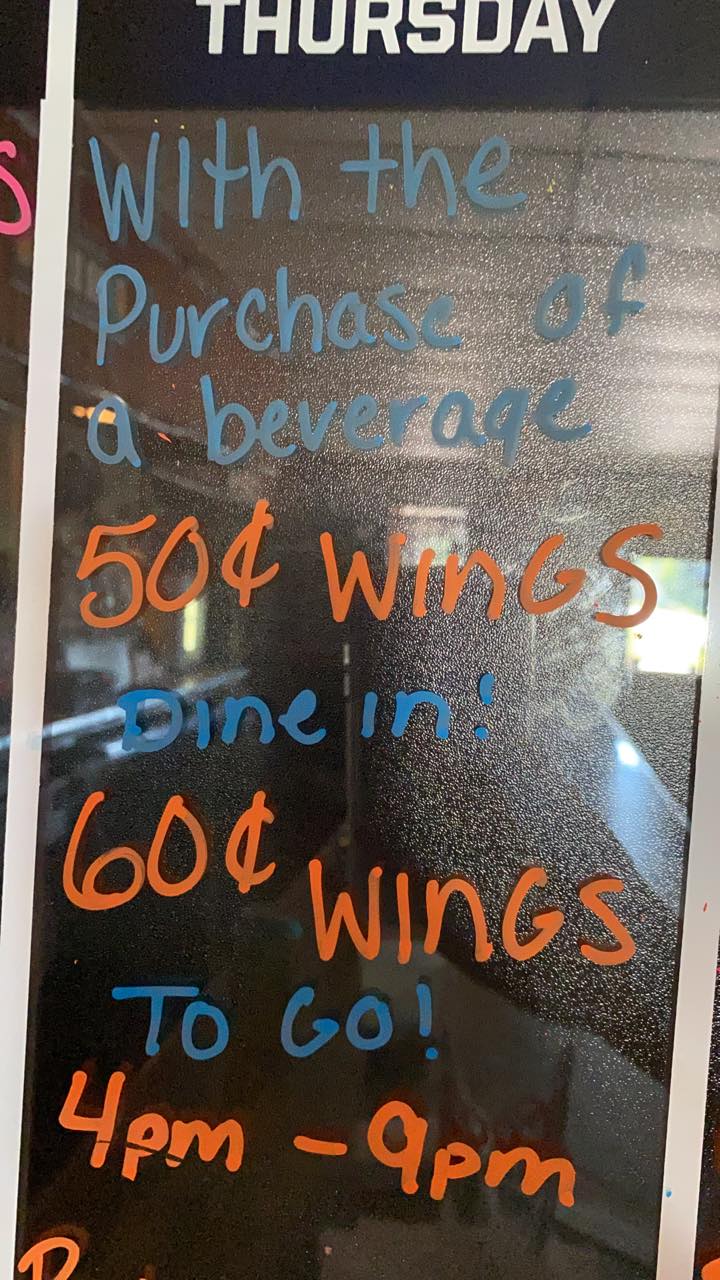 THURSDAY
With the
Purchase of
a beverage
50¢ WINGS
Dine in!
60¢ WINGS
TO GO!
4pm - 9pm